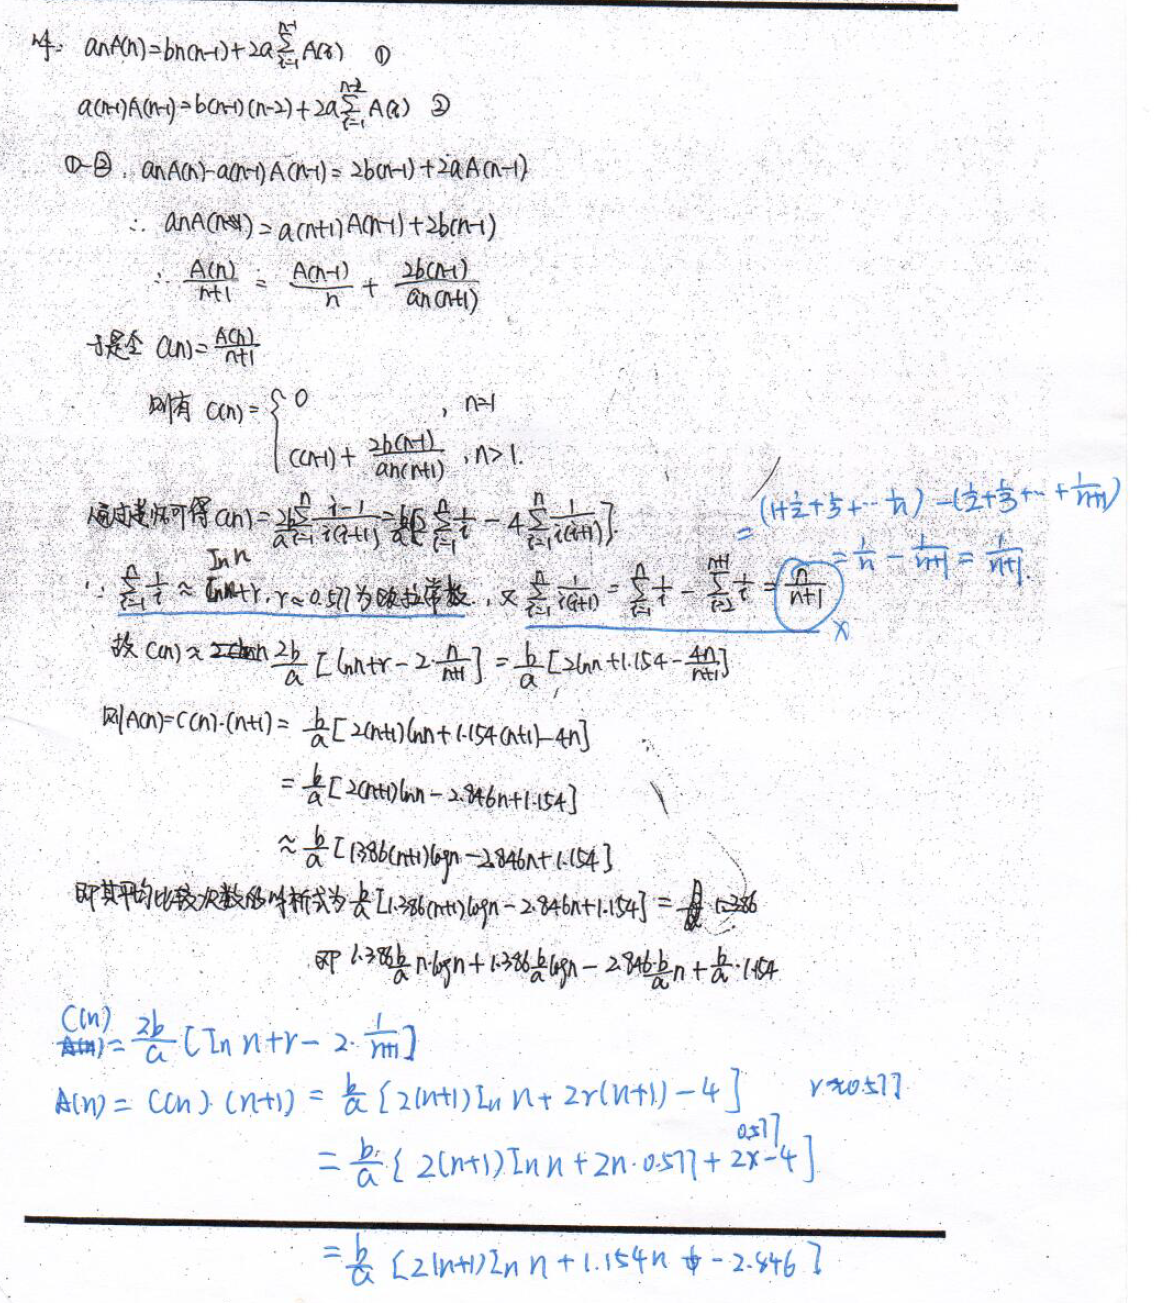 解: anA(n)=bn(n-1)+2a∑_{i=1}^{n-1} A(i) ①
a(n-1)A(n-1)=b(n-1)(n-2)+2a∑_{i=1}^{n-2} A(i) ②
①-②. anA(n)-a(n-1)A(n-1)=2b(n-1)+2aA(n-1)
∴ anA(n)=a(n+1)A(n-1)+2b(n-1)
∴ A(n)/(n+1) = A(n-1)/n + 2b(n-1)/(an(n+1))
于是令 C(n)=A(n)/(n+1)
则有 C(n)={ 0 , n=1
C(n-1)+2b(n-1)/(an(n+1)) , n>1.
通过迭代可得C(n)=2b/a ∑_{i=1}^{n} (i-1)/(i(i+1))=b/a[2∑_{i=1}^{n} 1/i - 4∑_{i=1}^{n} 1/(i(i+1))].
= (1+1/2+1/3+…1/n) -(1/2+1/3+…+1/(n+1))
= 1/n - 1/(n+1) = 1/(n+1).
ln n
∵ ∑_{i=1}^{n} 1/i ≈ lnn+r, r≈0.577为欧拉常数. 又∑_{i=1}^{n} 1/(i(i+1)) = ∑_{i=1}^{n} 1/i - ∑_{i=2}^{n+1} 1/i = n/(n+1) ×
故 C(n)≈ 2b/a [lnn+r-2·n/(n+1)] = b/a [2lnn+1.154-4n/(n+1)]
则A(n)=C(n)·(n+1)= b/a[2(n+1)lnn+1.154(n+1)-4n]
= b/a[2(n+1)lnn-2.846n+1.154]
≈ b/a[1.386(n+1)logn-2.846n+1.154]
即其平均比较次数的解析式为 b/a[1.386(n+1)logn-2.846n+1.154] = 1.386
即 1.386b/a n·logn+1.386b/a logn-2.846·b/a n+b/a·1.154
C(n)
= 2b/a [ln n+r-2·1/(n+1)]
A(n) = C(n)·(n+1) = b/a [2(n+1)ln n+2r(n+1)-4] r≈0.577
0.577
= b/a [2(n+1)ln n+2n·0.577+2×-4]
= b/a [2(n+1)ln n+1.154n -2.846]